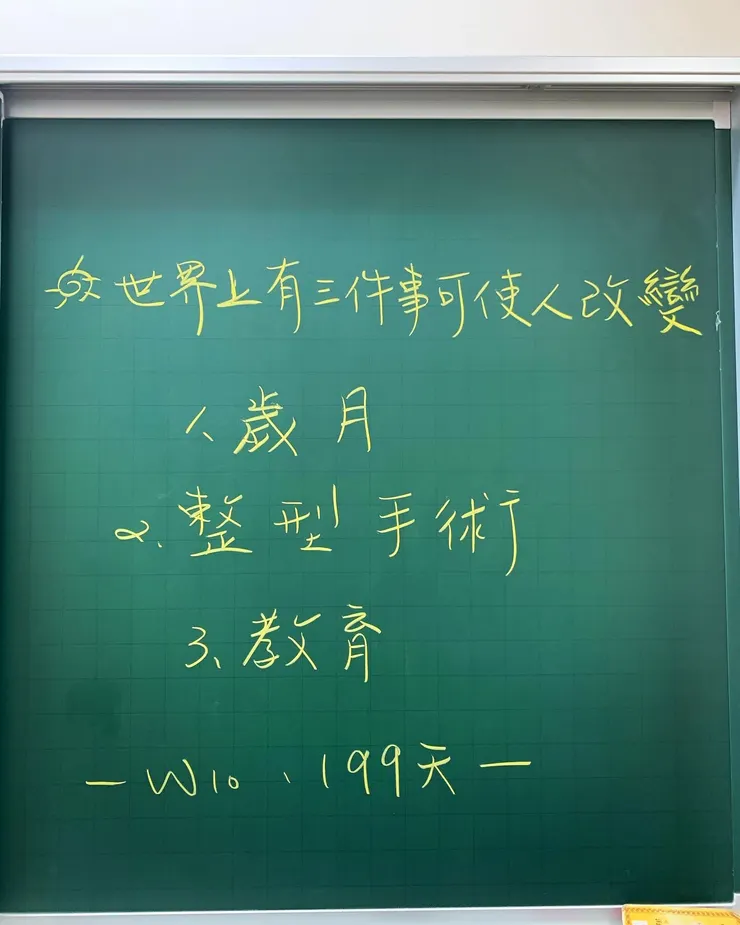 世界上有三件事可使人改變
1、歲月
2、整型手術
3、教育
— W10、199天 —